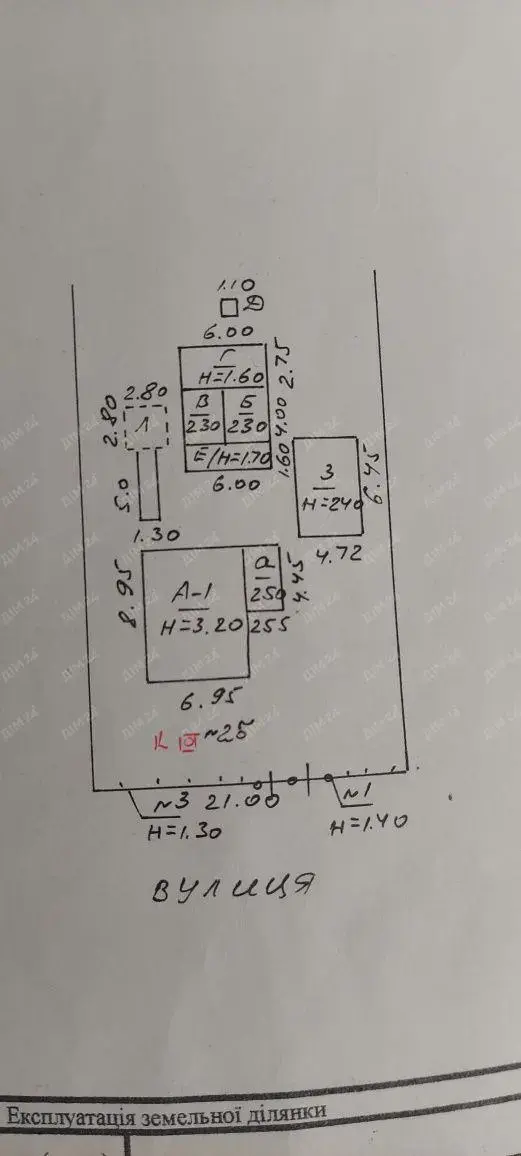 1.10
Д
6.00
Г
H=1.60
2.75
В
230
Б
230
4.00
Е/H=1.70
1.60
6.00
2.80
2.80
Л
5.0
1.30
З
H=240
6.45
4.72
8.95
А-1
H=3.20
а
250
4.45
255
6.95
К
~25
~3 21.00
H=1.30
~1
H=1.40
ВУЛИЦЯ
Експлуатація земельної ділянки
ДІМ24